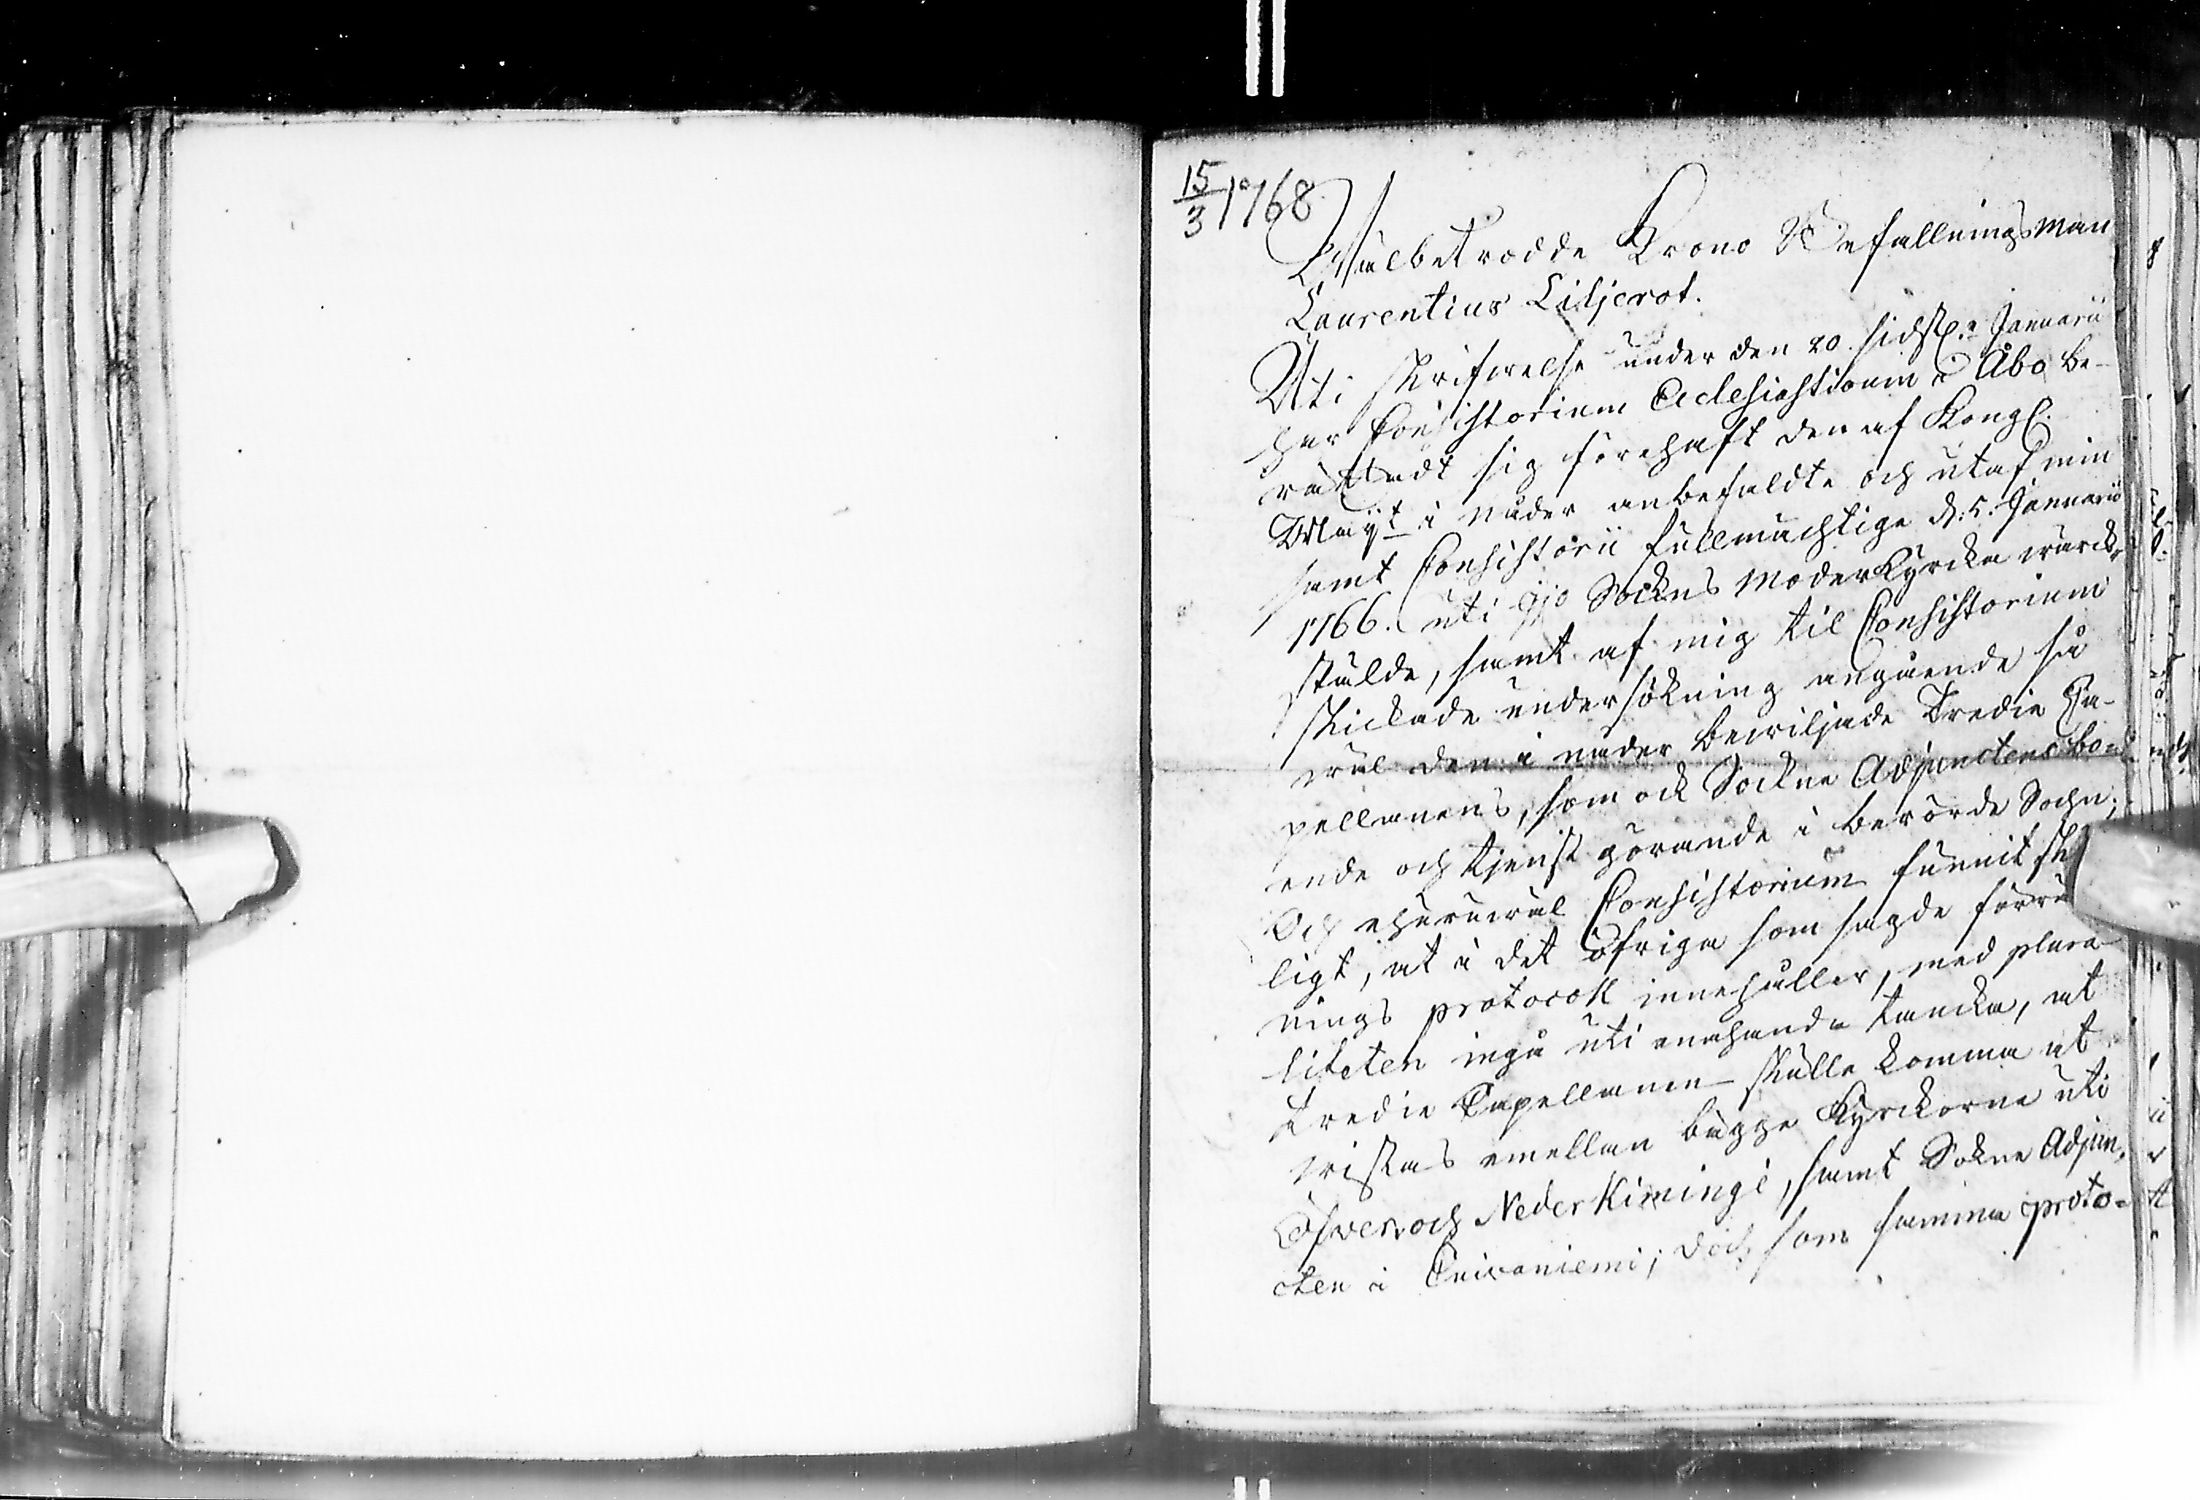 15/3 1768
Wälbetrodde Krono Befallningsman
Laurentius Liljerot.
Uti skrifwelse under den 20 sidstl.e Januarii
har Consistorium Eclesiasticum i Åbo be-
rättadt sig förehaft den af Kongl.
Maÿt i nåder anbefaldte och utaf min
samt Consistorii fullmächtige d: 5. Januarii
1766. uti Ijo Sockns Moderkyrcka wärck-
stälde, samt af mig til Consistorium
skickade undersökning angående så
wäl den i nåder bewiljade Tredie Ca-
pellanens, som ock Sockne Adjunctens bo-
ende och tjenst görande i berörde Sochn;
Och ehuruwäl Consistorium funnit
ligt, at i det öfriga som sagde
nings protocoll innehåller, med plura-
liteten ingå uti enahanda tancka, at
tredie Capellanen skulle komma at
wistas emellan bägge Kyrckorne uti
Öfwer och Neder Kimingi, samt Sokne Adjun-
cten i Cuivaniemi; doch som samma proto-